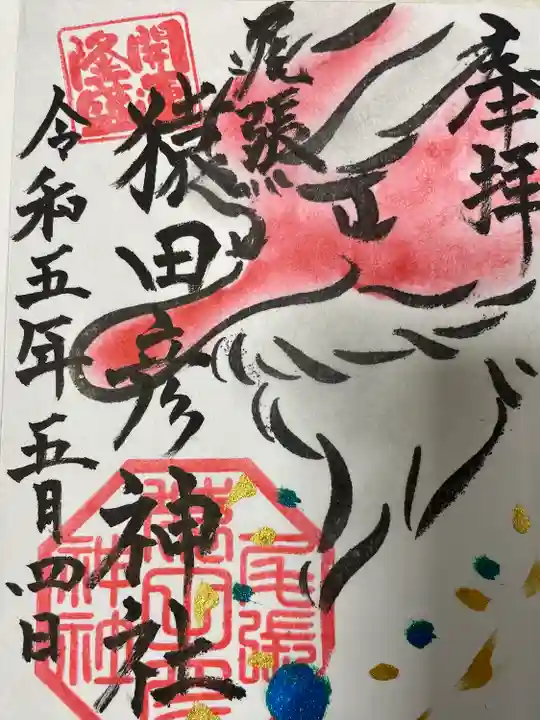 奉拝
尾張
猿田彦神社
令和五年五月四日
開運
隆盛
尾張
猿田彦
神社